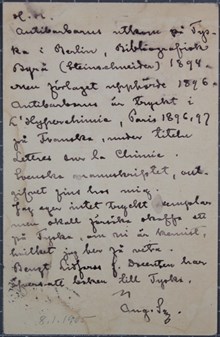 H. H.
Antibarbarus utkom på Tys-
ka i Berlin, Bibliografisk
Byrå (Steinschneider) 1894-
men förlaget upphörde 1896-
Antibarbarus är tryckt i
L'Hyperchimie, Paris 1896, 97
på Franska, under titeln
Lettres sur la Chimie.
Svenska manuskriptet, out-
gifvet fins hos mig.
Jag eger intet tryckt exemplar
men skall försöka skaffa ett
på Tyska, om ni är kemist,
hvilket jag ber få veta.
Bengt Lidforss f. Docenten har
öfversatt boken till Tyska.
Aug. Sg.
8.1.1905